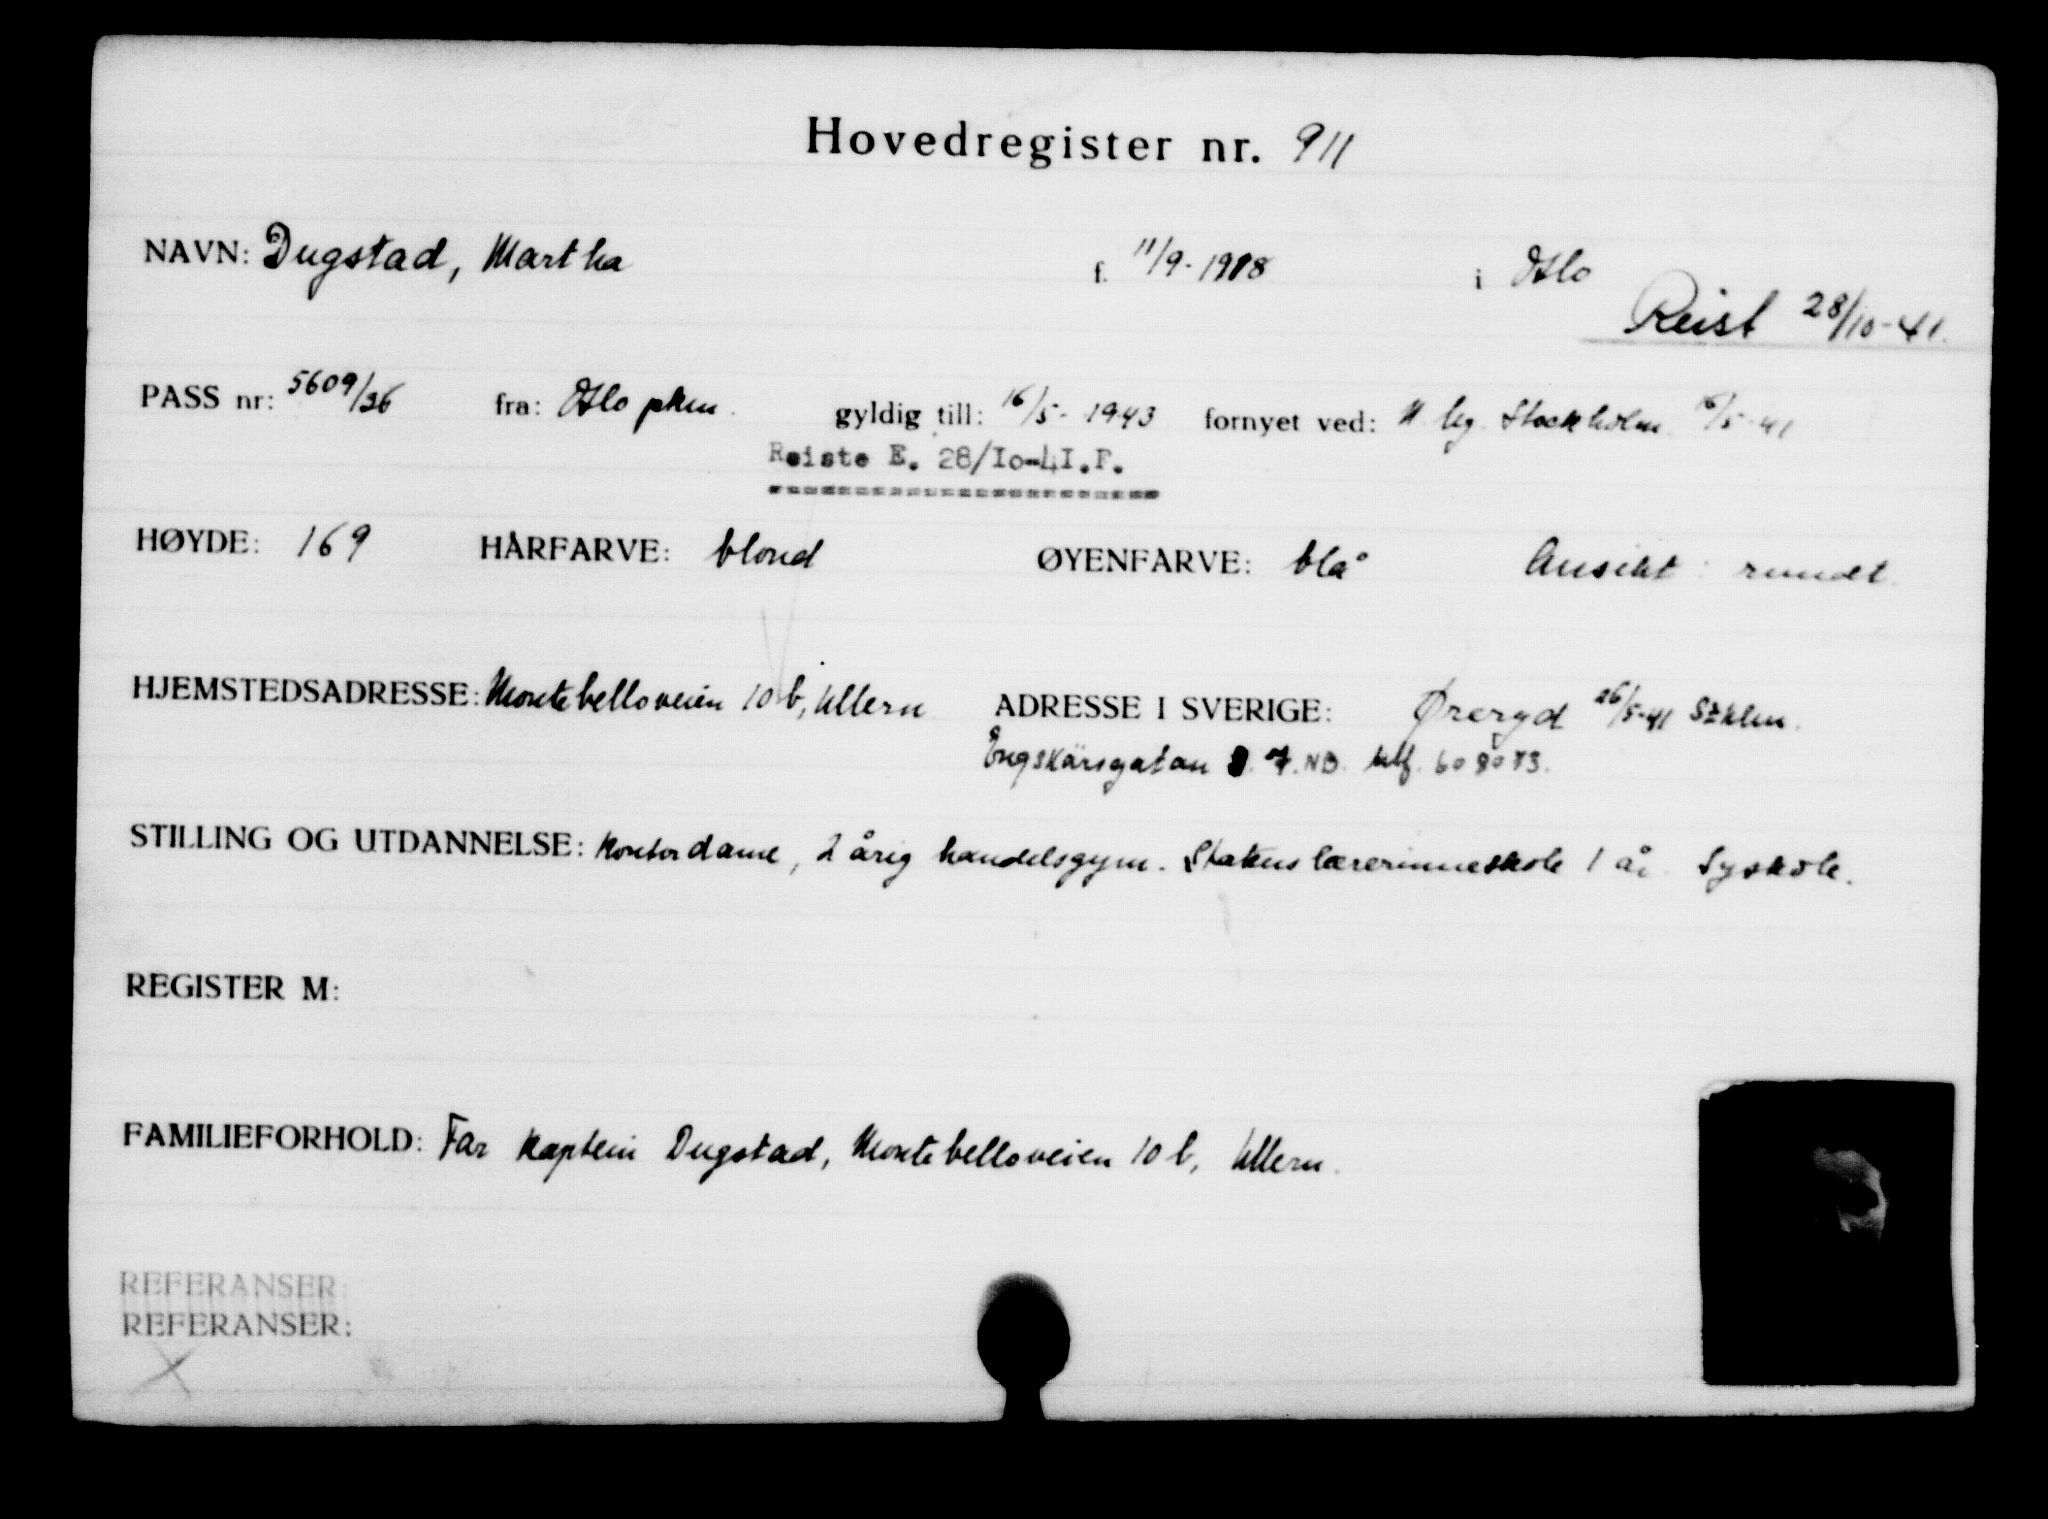 Hovedregister nr. 911
NAVN: Dugstad, Martha f. 11/9-1918 i Oslo
Reist 28/10-41.
PASS nr: 5609/36 fra: Oslo pkm. gyldig till: 16/5-1943 fornyet ved: N. leg. Stockholm 16/5-41
Reiste E. 28/Io-4I.F.
HØYDE: 169 HÅRFARVE: blond ØYENFARVE: blå Ansikt: rundt.
HJEMSTEDSADRESSE: Montebelloveien 10 b, Ullern ADRESSE I SVERIGE: Øreryd 26/5-41 Sthlm.
Engskärsgatan 7. NB. tlf. 608083.
STILLING OG UTDANNELSE: Kontordame, 2 årig handelsgym. Statens lærerinneskole 1 år. Syskole.
REGISTER M:
FAMILIEFORHOLD: Far Kaptein Dugstad, Montebelloveien 10 b, Ullern.
REFERANSER:
REFERANSER:
X